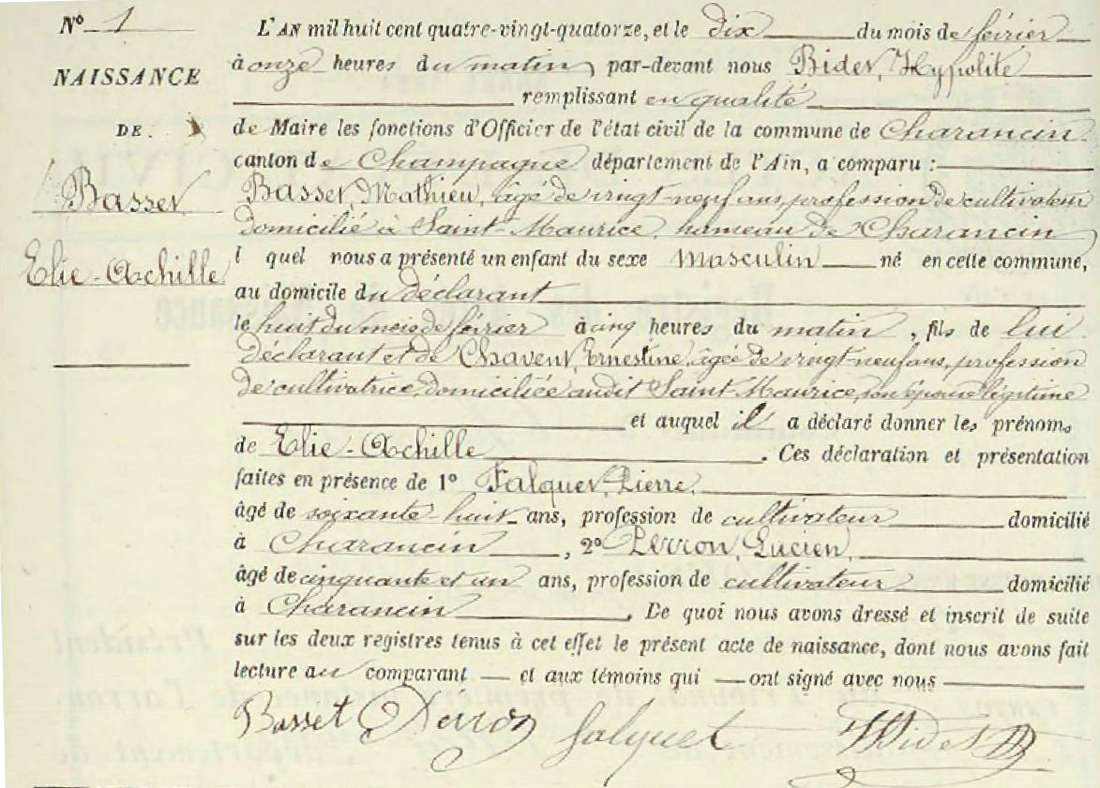 N° 1
NAISSANCE
DE
Basset
Elie-Achille
L'AN mil huit cent quatre-vingt-quatorze, et le dix du mois de février
à onze heures du matin, par-devant nous Bidet, Hypolite
remplissant en qualité
de Maire les fonctions d'Officier de l'état civil de la commune de Charancin
canton de Champagne département de l'Ain, a comparu :
Basset, Mathieu, âgé de vingt-neuf ans, profession de cultivateur
domicilié à Saint-Maurice, hameau de Charancin,
l quel nous a présenté un enfant du sexe masculin né en cette commune,
au domicile du déclarant
le huit du mois de février à cinq heures du matin, fils de lui
déclarant et de Chavent, Ernestine, âgée de vingt-neuf ans, profession
de cultivatrice, domiciliée audit Saint-Maurice, son épouse légitime
et auquel il a déclaré donner les prénoms
de Elie-Achille. Ces déclaration et présentation
faites en présence de 1° Falquet, Pierre,
âgé de soixante-huit ans, profession de cultivateur domicilié
à Charancin, 2° Perron, Lucien,
âgé de cinquante et un ans, profession de cultivateur domicilié
à Charancin. De quoi nous avons dressé et inscrit de suite
sur les deux registres tenus à cet effet le présent acte de naissance, dont nous avons fait
lecture au comparant — et aux témoins qui — ont signé avec nous
Basset Perron falquet HBidet